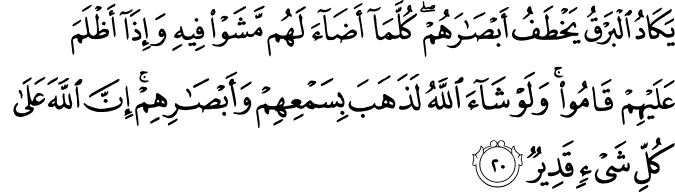 يَكَادُ ٱلْبَرْقُ يَخْطَفُ أَبْصَـٰرَهُمْ ۖ كُلَّمَآ أَضَآءَ لَهُم مَّشَوْا۟ فِيهِ وَإِذَآ أَظْلَمَ
عَلَيْهِمْ قَامُوا۟ ۚ وَلَوْ شَآءَ ٱللَّهُ لَذَهَبَ بِسَمْعِهِمْ وَأَبْصَـٰرِهِمْ ۚ إِنَّ ٱللَّهَ عَلَىٰ
كُلِّ شَىْءٍ قَدِيرٌ ٢٠